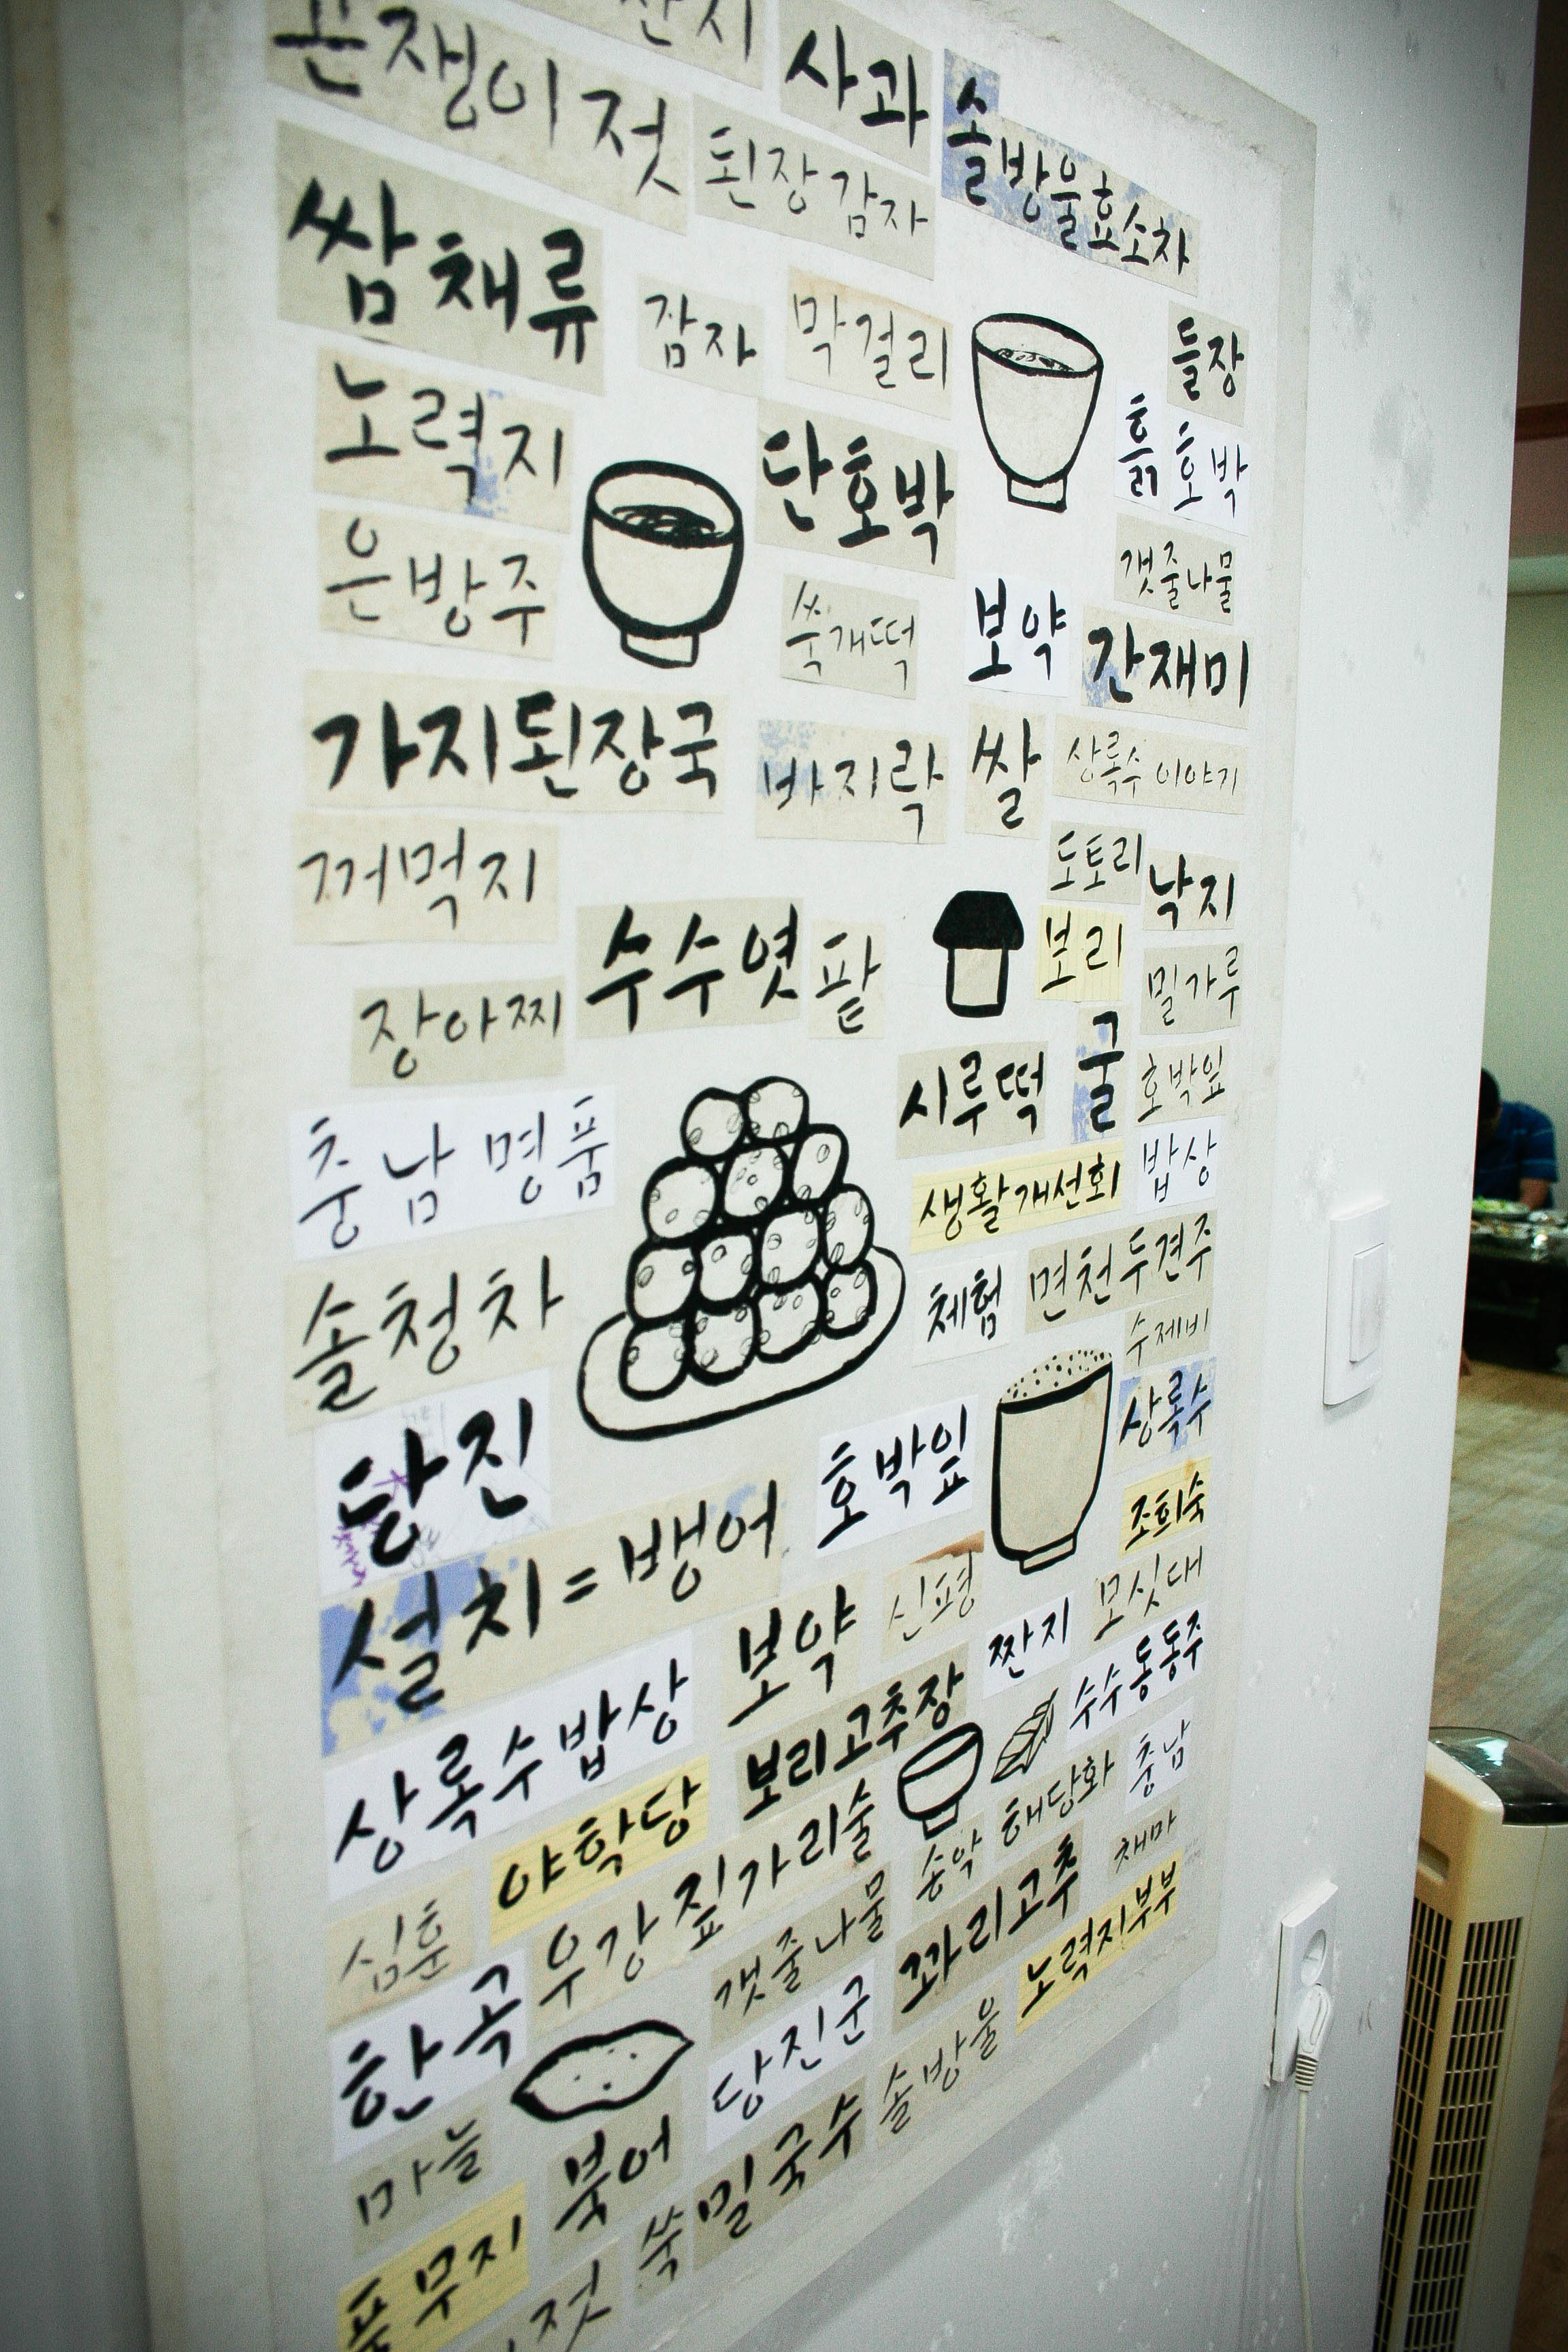 곤쟁이 젓
사과
솔방울효소차
된장 감자
쌈 채류
감자
막걸리
들장
노력지
단호박
흙 호박
은방주
쑥개떡
보약
갯줄나물
간재미
가지된장국
바지락
쌀
상록수 이야기
꺼먹지
도토리
낙지
수수엿
팥
보리
밀가루
장아찌
시루떡
굴
호박잎
충남 명품
생활개선회
밥상
솔청차
체험
면천두견주
수제비
당진
호박잎
상록수
조희숙
설치=뱅어
보약
신평
짠지
모싯대
상록수밥상
보리고추장
수수동동주
야학당
해당화
충남
심훈
우강 짚가리술
송악
채마
한곡
갯줄나물
꽈리고추
노력지부부
마늘
당진군
솔방울
북어
밀국수
쑥
무지
젓